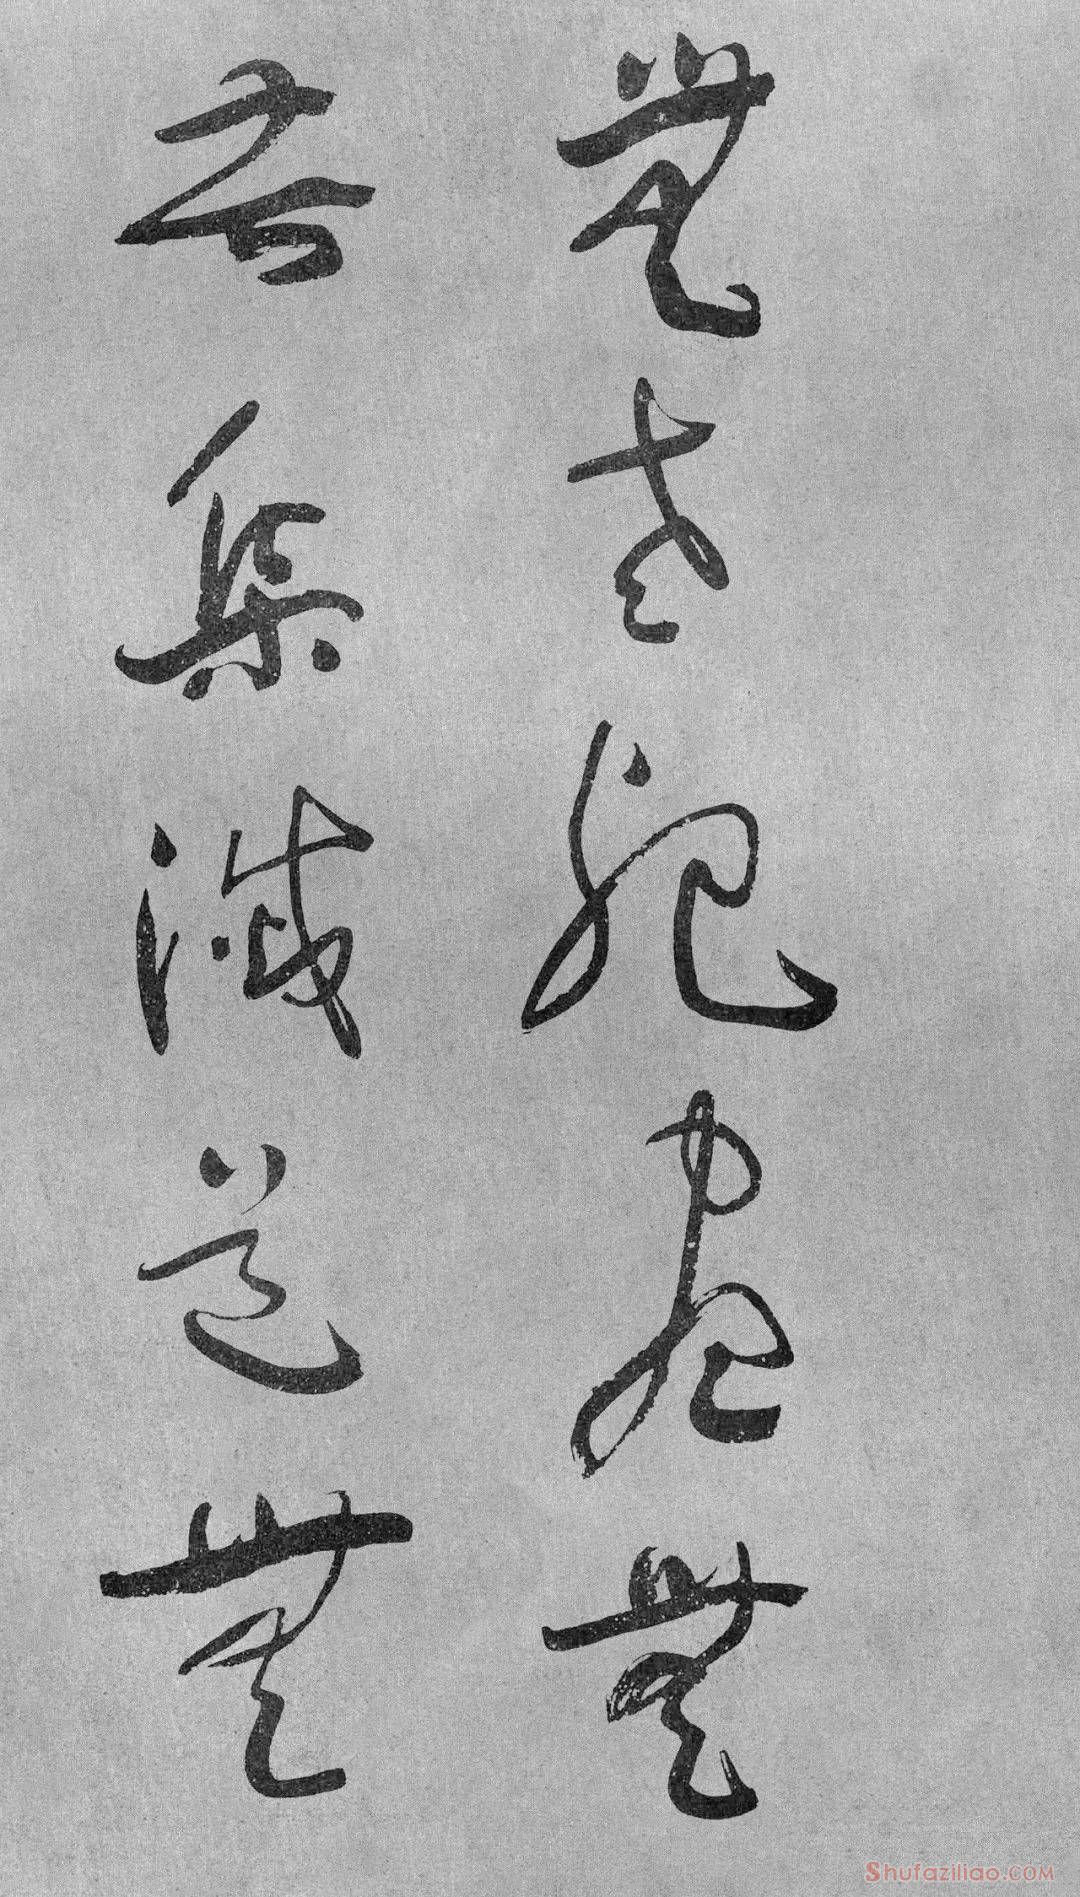 無老死盡無
苦集滅道無
Shufaziliao.COM